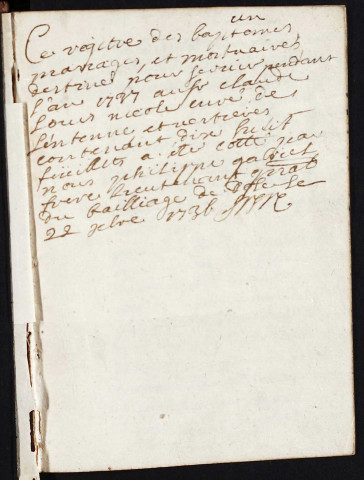 un
Ce rejitre des baptemes
mariages, et mortuaires
destiné pour servir pendant
l'an 1737 au Sr claude
Louis nicole curé de
et
contenant dix huit
feuillets a été cotté par
nous philippe gabriel
frere lieutenant gnāl
du bailliage de
22 xbre 1736